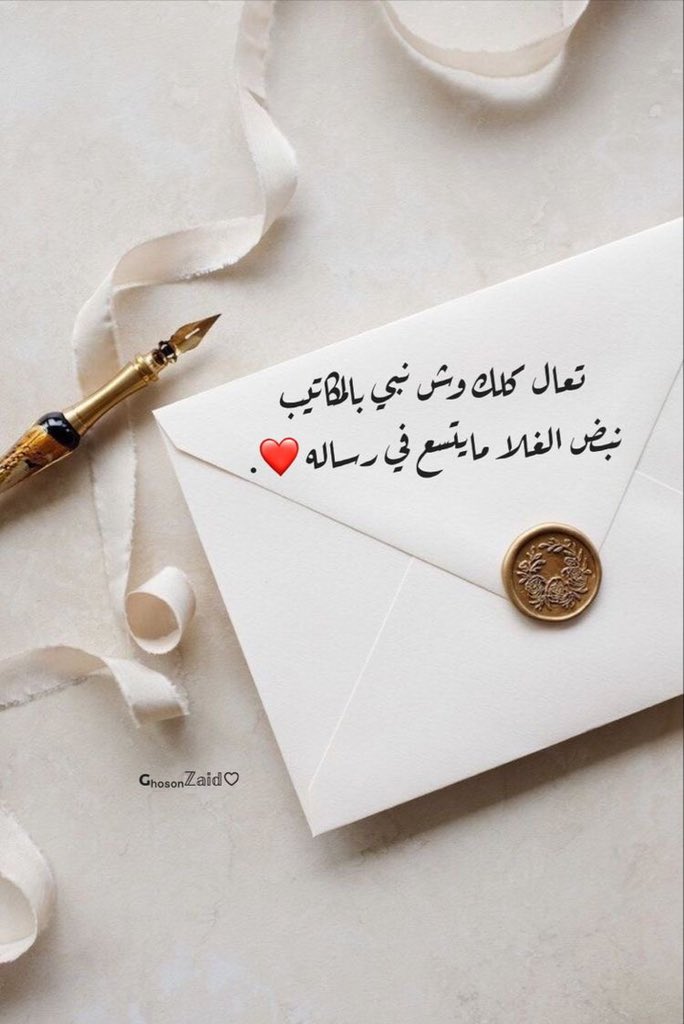 تعال كلك وش نبي بالمكاتيب
نبض الغلا مايتسع في رساله ❤️.
GhosonZaid♡